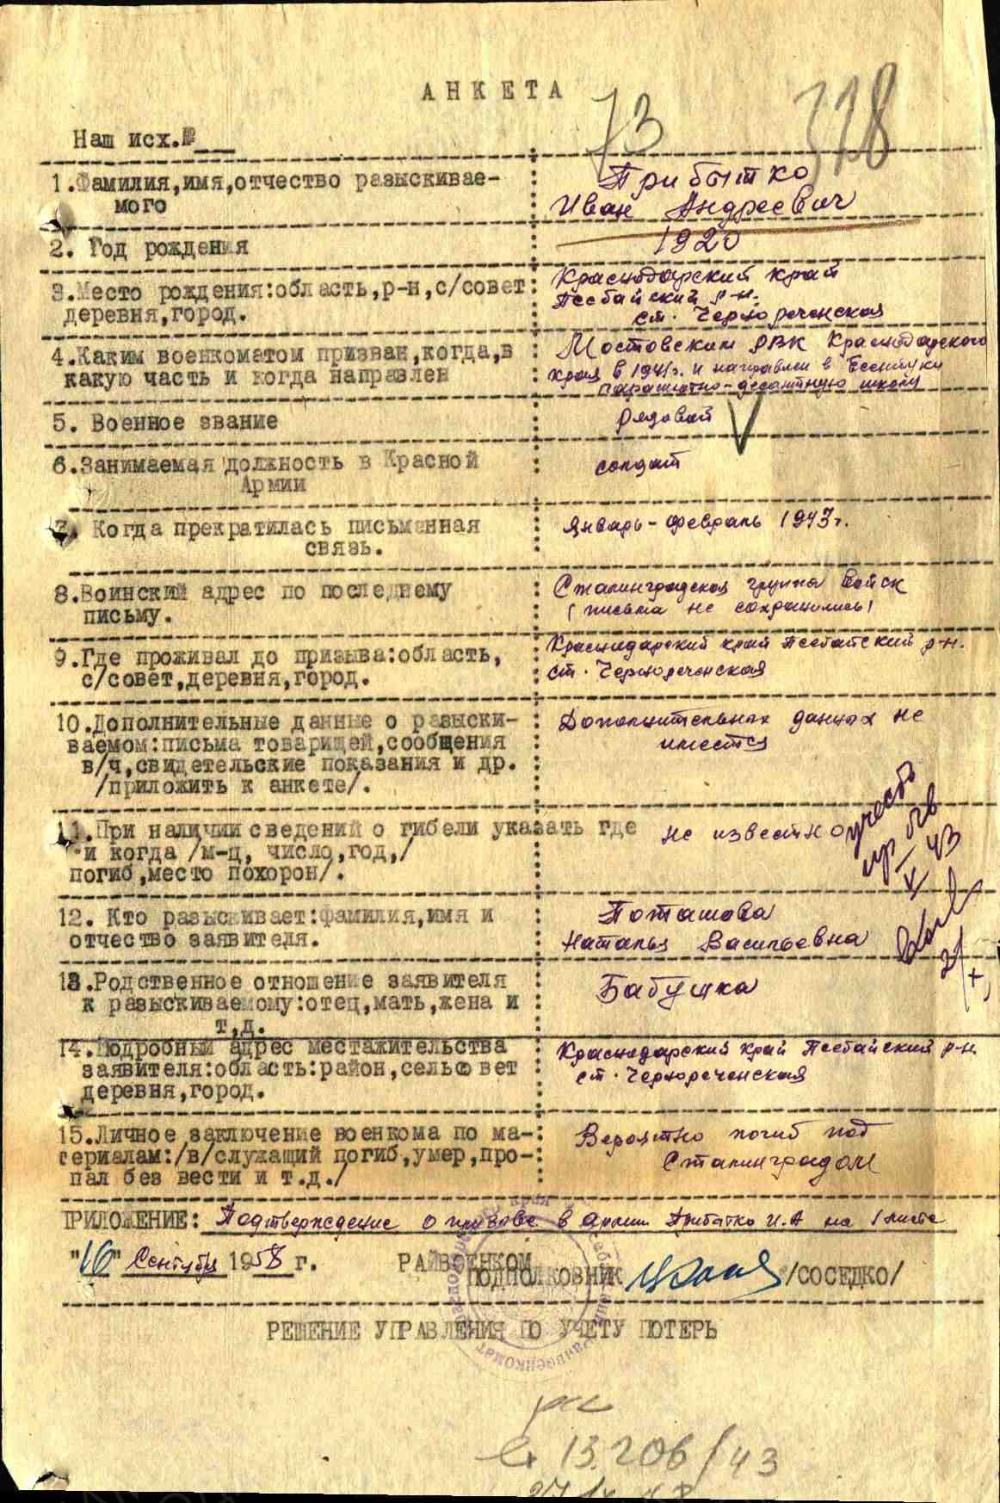 АНКЕТА
73
318
Наш исх.№
1.Фамилия,имя,отчество разыскивае-
мого
Прибытко
Иван Андреевич
2. Год рождения
1920
3.Место рождения:область,р-н,с/совет
деревня,город.
Краснодарский край
Псебайский р-н.
ст. Чернореченская
4.Каким военкоматом призван,когда,в
какую часть и когда направлен
Мостовским РВК Краснодарского
края в 1941г. и направлен в Ессентуки
парашютно-десантную школу
5. Военное звание
рядовой
6.Занимаемая должность в Красной
Армии
солдат
7. Когда прекратилась письменная
связь.
Январь-февраль 1943г.
8.Воинский адрес по последнему
письму.
Сталинградская группа войск
(письма не сохранились)
9.Где проживал до призыва:область,
с/совет,деревня,город.
Краснодарский край Псебайский р-н.
ст. Чернореченская
10.Дополнительные данные о разыски-
ваемом:письма товарищей,сообщения
в/ч,свидетельские показания и др.
/приложить к анкете/.
Дополнительных данных не
имеется
11.При наличии сведений о гибели указать где
и когда /м-ц, число,год,/
погиб,место похорон/.
не известно
учесть
пр. б/в
V 43
12. Кто разыскивает:фамилия,имя и
отчество заявителя.
Поташова
Наталья Васильевна
13.Родственное отношение заявителя
к разыскиваемому:отец,мать,жена и
т,д.
Бабушка
14.Подробный адрес местажительства
заявителя:область:район,сельсовет
деревня,город.
Краснодарский край Псебайский р-н.
ст. Чернореченская
15.Личное заключение военкома по ма-
териалам:/в/служащий погиб,умер,про-
пал без вести и т.д./
Вероятно погиб под
Сталинградом
ПРИЛОЖЕНИЕ: Подтверждение о призыве в армию Прибытко И.А на 1 листе
"16" Сентября 1958 г. РАЙВОЕНКОМ
ПОДПОЛКОВНИК /СОСЕДКО/
РЕШЕНИЕ УПРАВЛЕНИЯ ПО УЧЕТУ ПОТЕРЬ
13.206/43